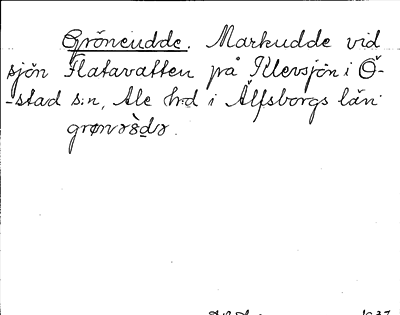 Gröneudde. Markudde vid
sjön Flatavatten på Klevsjön i Ö-
-stad s:n, Ale hd i Älfsborgs län.